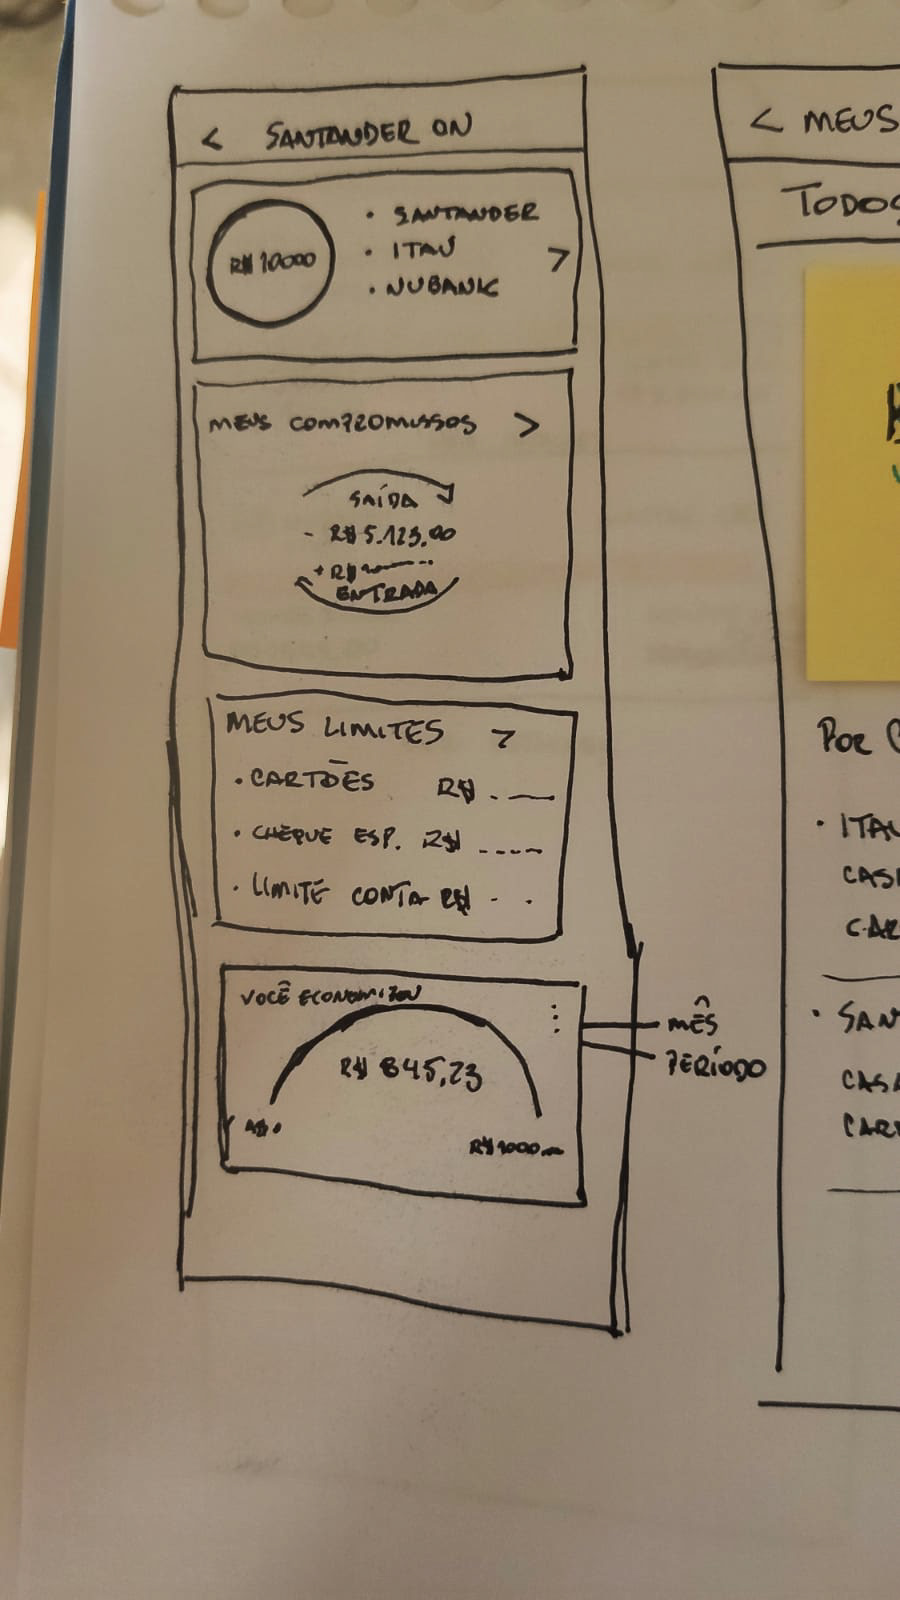 < SANTANDER ON
R$ 10000
• SANTANDER
• ITAU
• NUBANK
>
MEUS COMPROMISSOS >
SAÍDA
- R$ 5.123,00
+ R$
ENTRADA
MEUS LIMITES >
• CARTÕES R$
• CHEQUE ESP. R$
• LIMITE CONTA R$
VOCÊ ECONOMIZOU
R$ 845,23
R$ 0
R$ 1000
MÊS
PERÍODO
< MEUS
TODOS
POR
• ITAU
CAS
CAR
• SAN
CASA
CAR